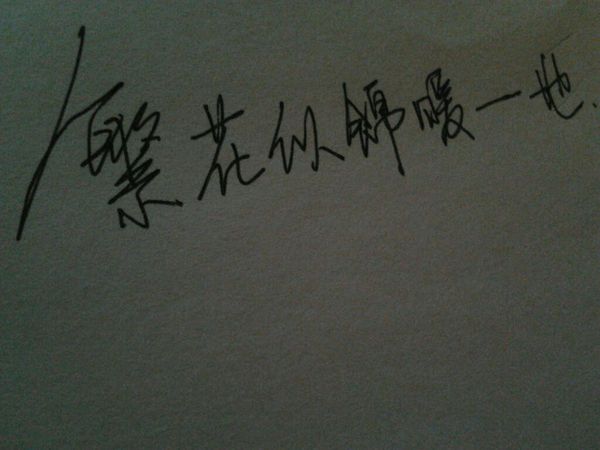 繁花似锦暖一世.